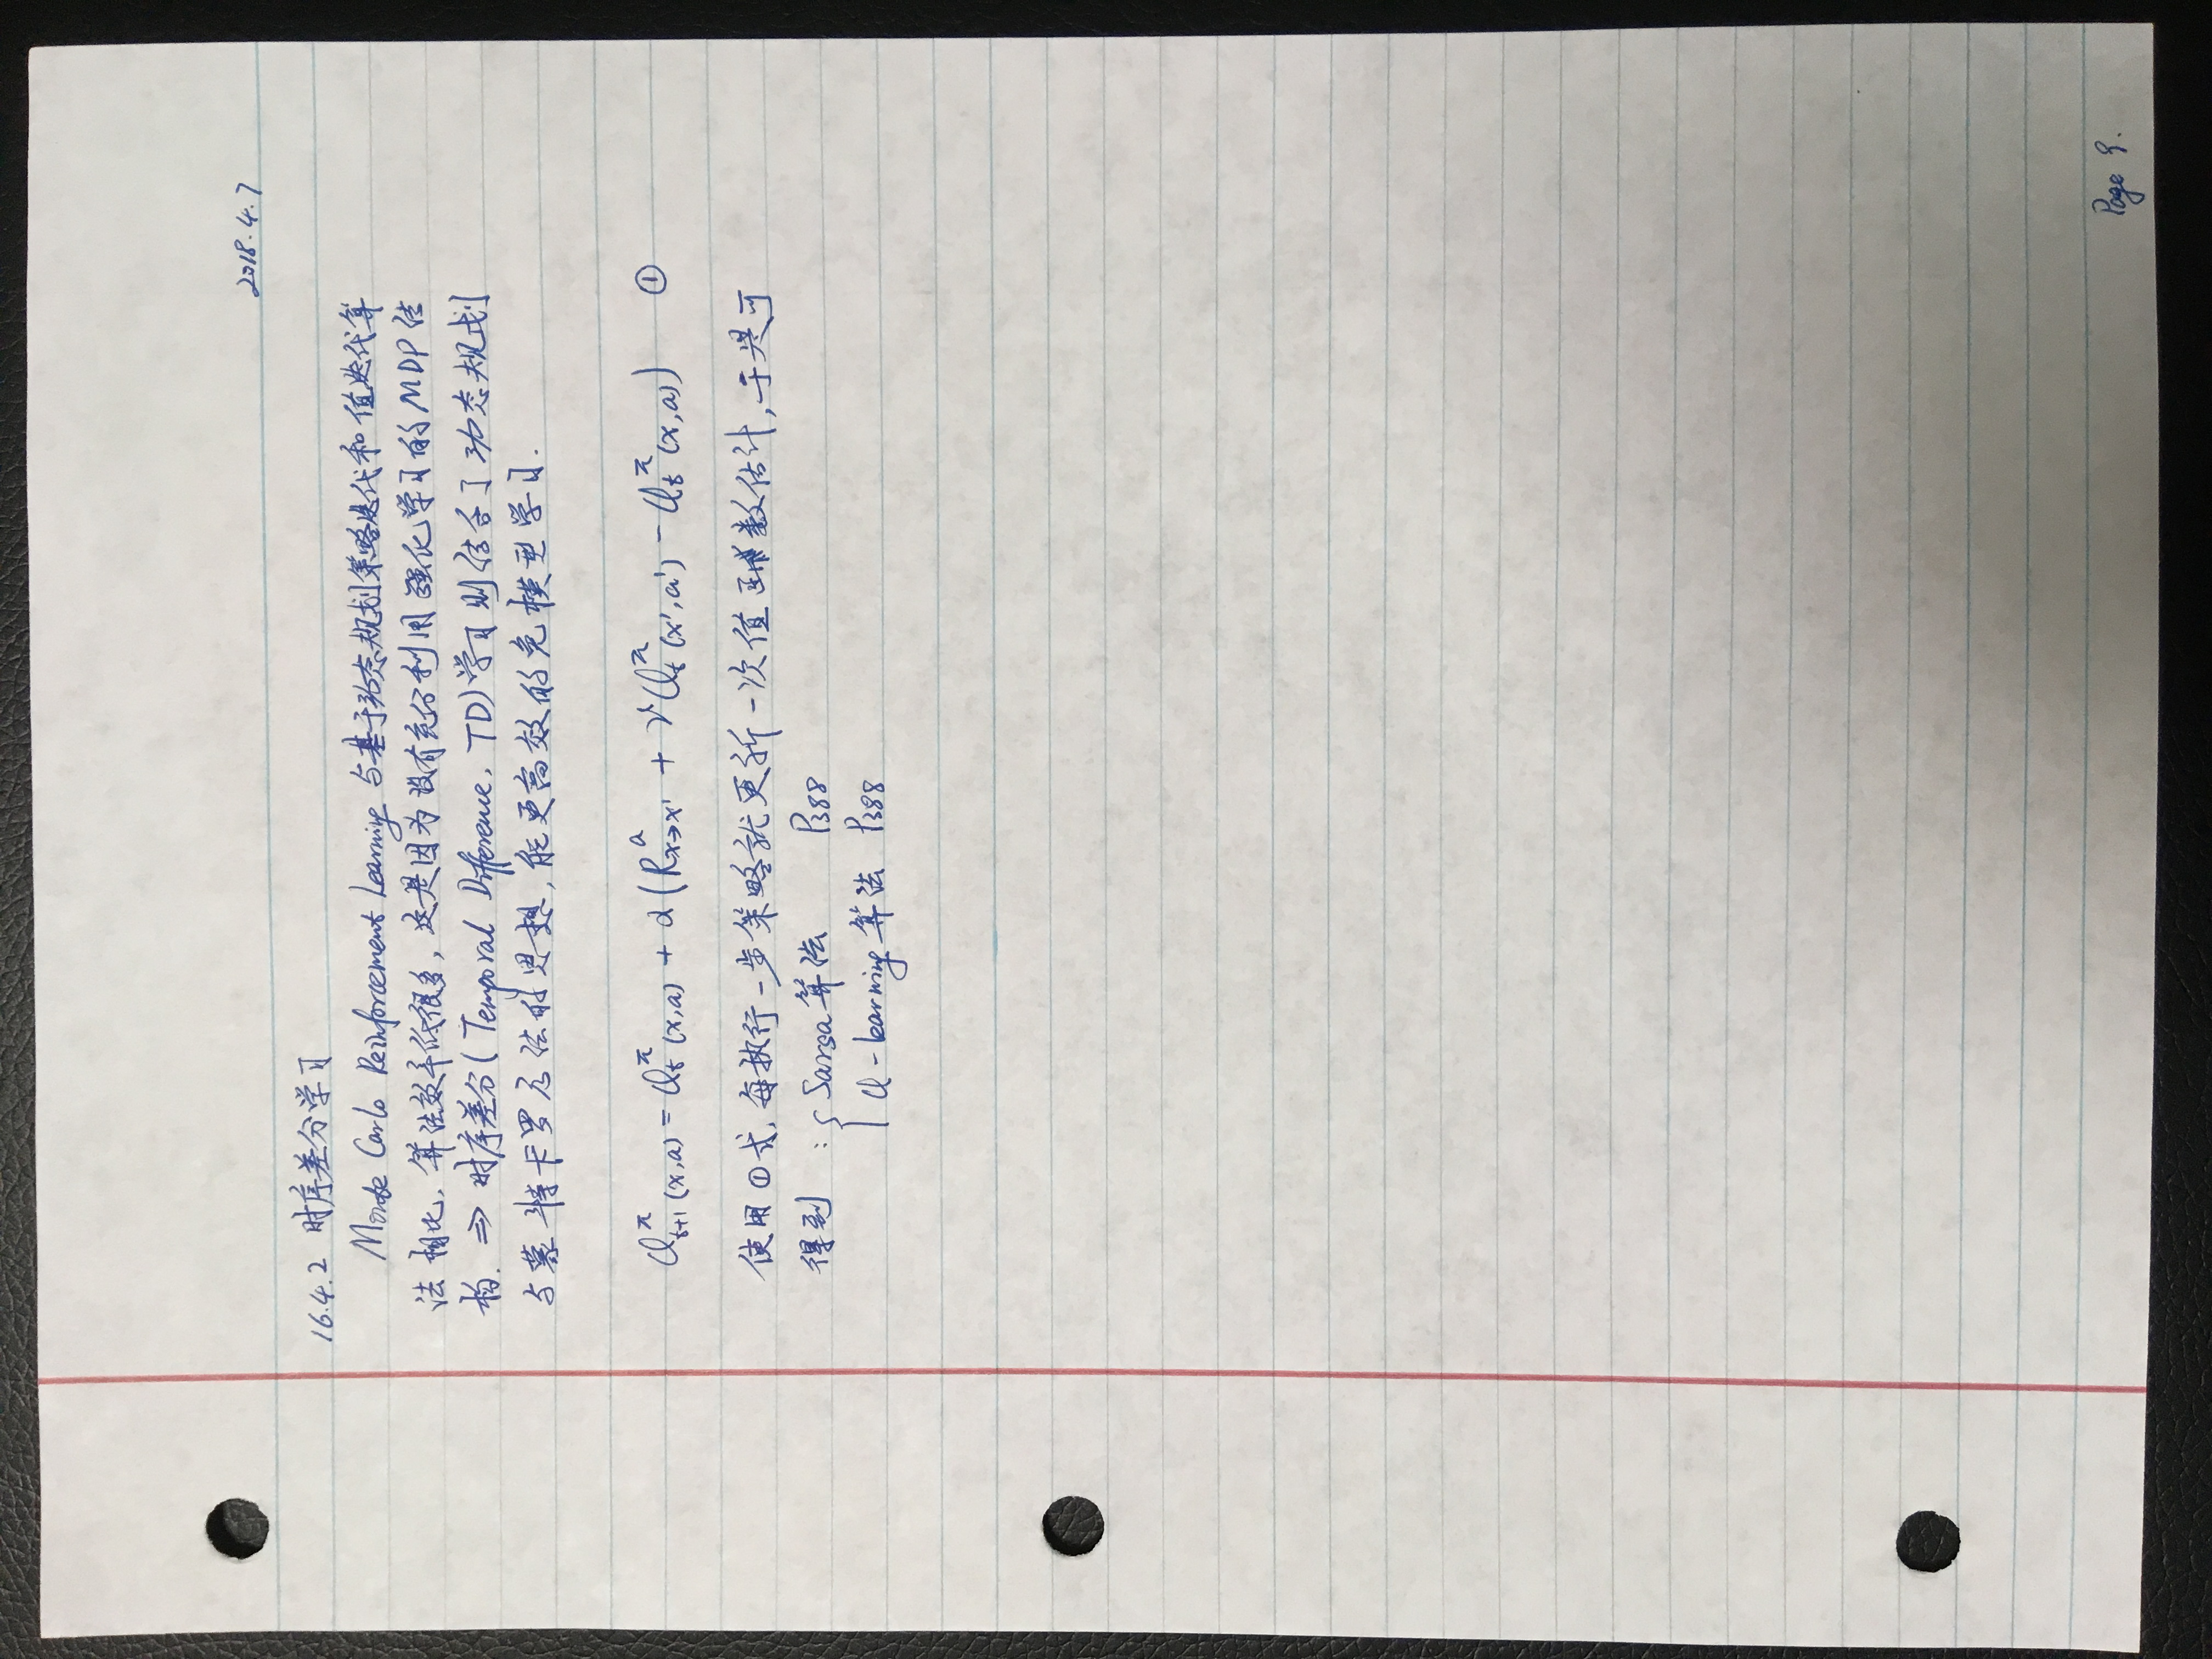 2018.4.7
16.4.2 时序差分学习
Monte Carlo Reinforcement Learning 与基于动态规划策略迭代和值迭代算
法相比,算法效率低很多,这是因为没有充分利用强化学习的MDP结
构. ⇒ 时序差分(Temporal Difference, TD)学习则结合了动态规划
与蒙特卡罗方法的思想,能更高效的免模型学习.
Q^π_{t+1}(x,a) = Q^π_t(x,a) + α(R^a_{x→x'} + γQ^π_t(x',a') - Q^π_t(x,a)) ①
使用①式,每执行一步策略就更新一次值函数估计,于是可
得到 : { Sarsa算法 P388
Q-learning算法 P388
Page 9.